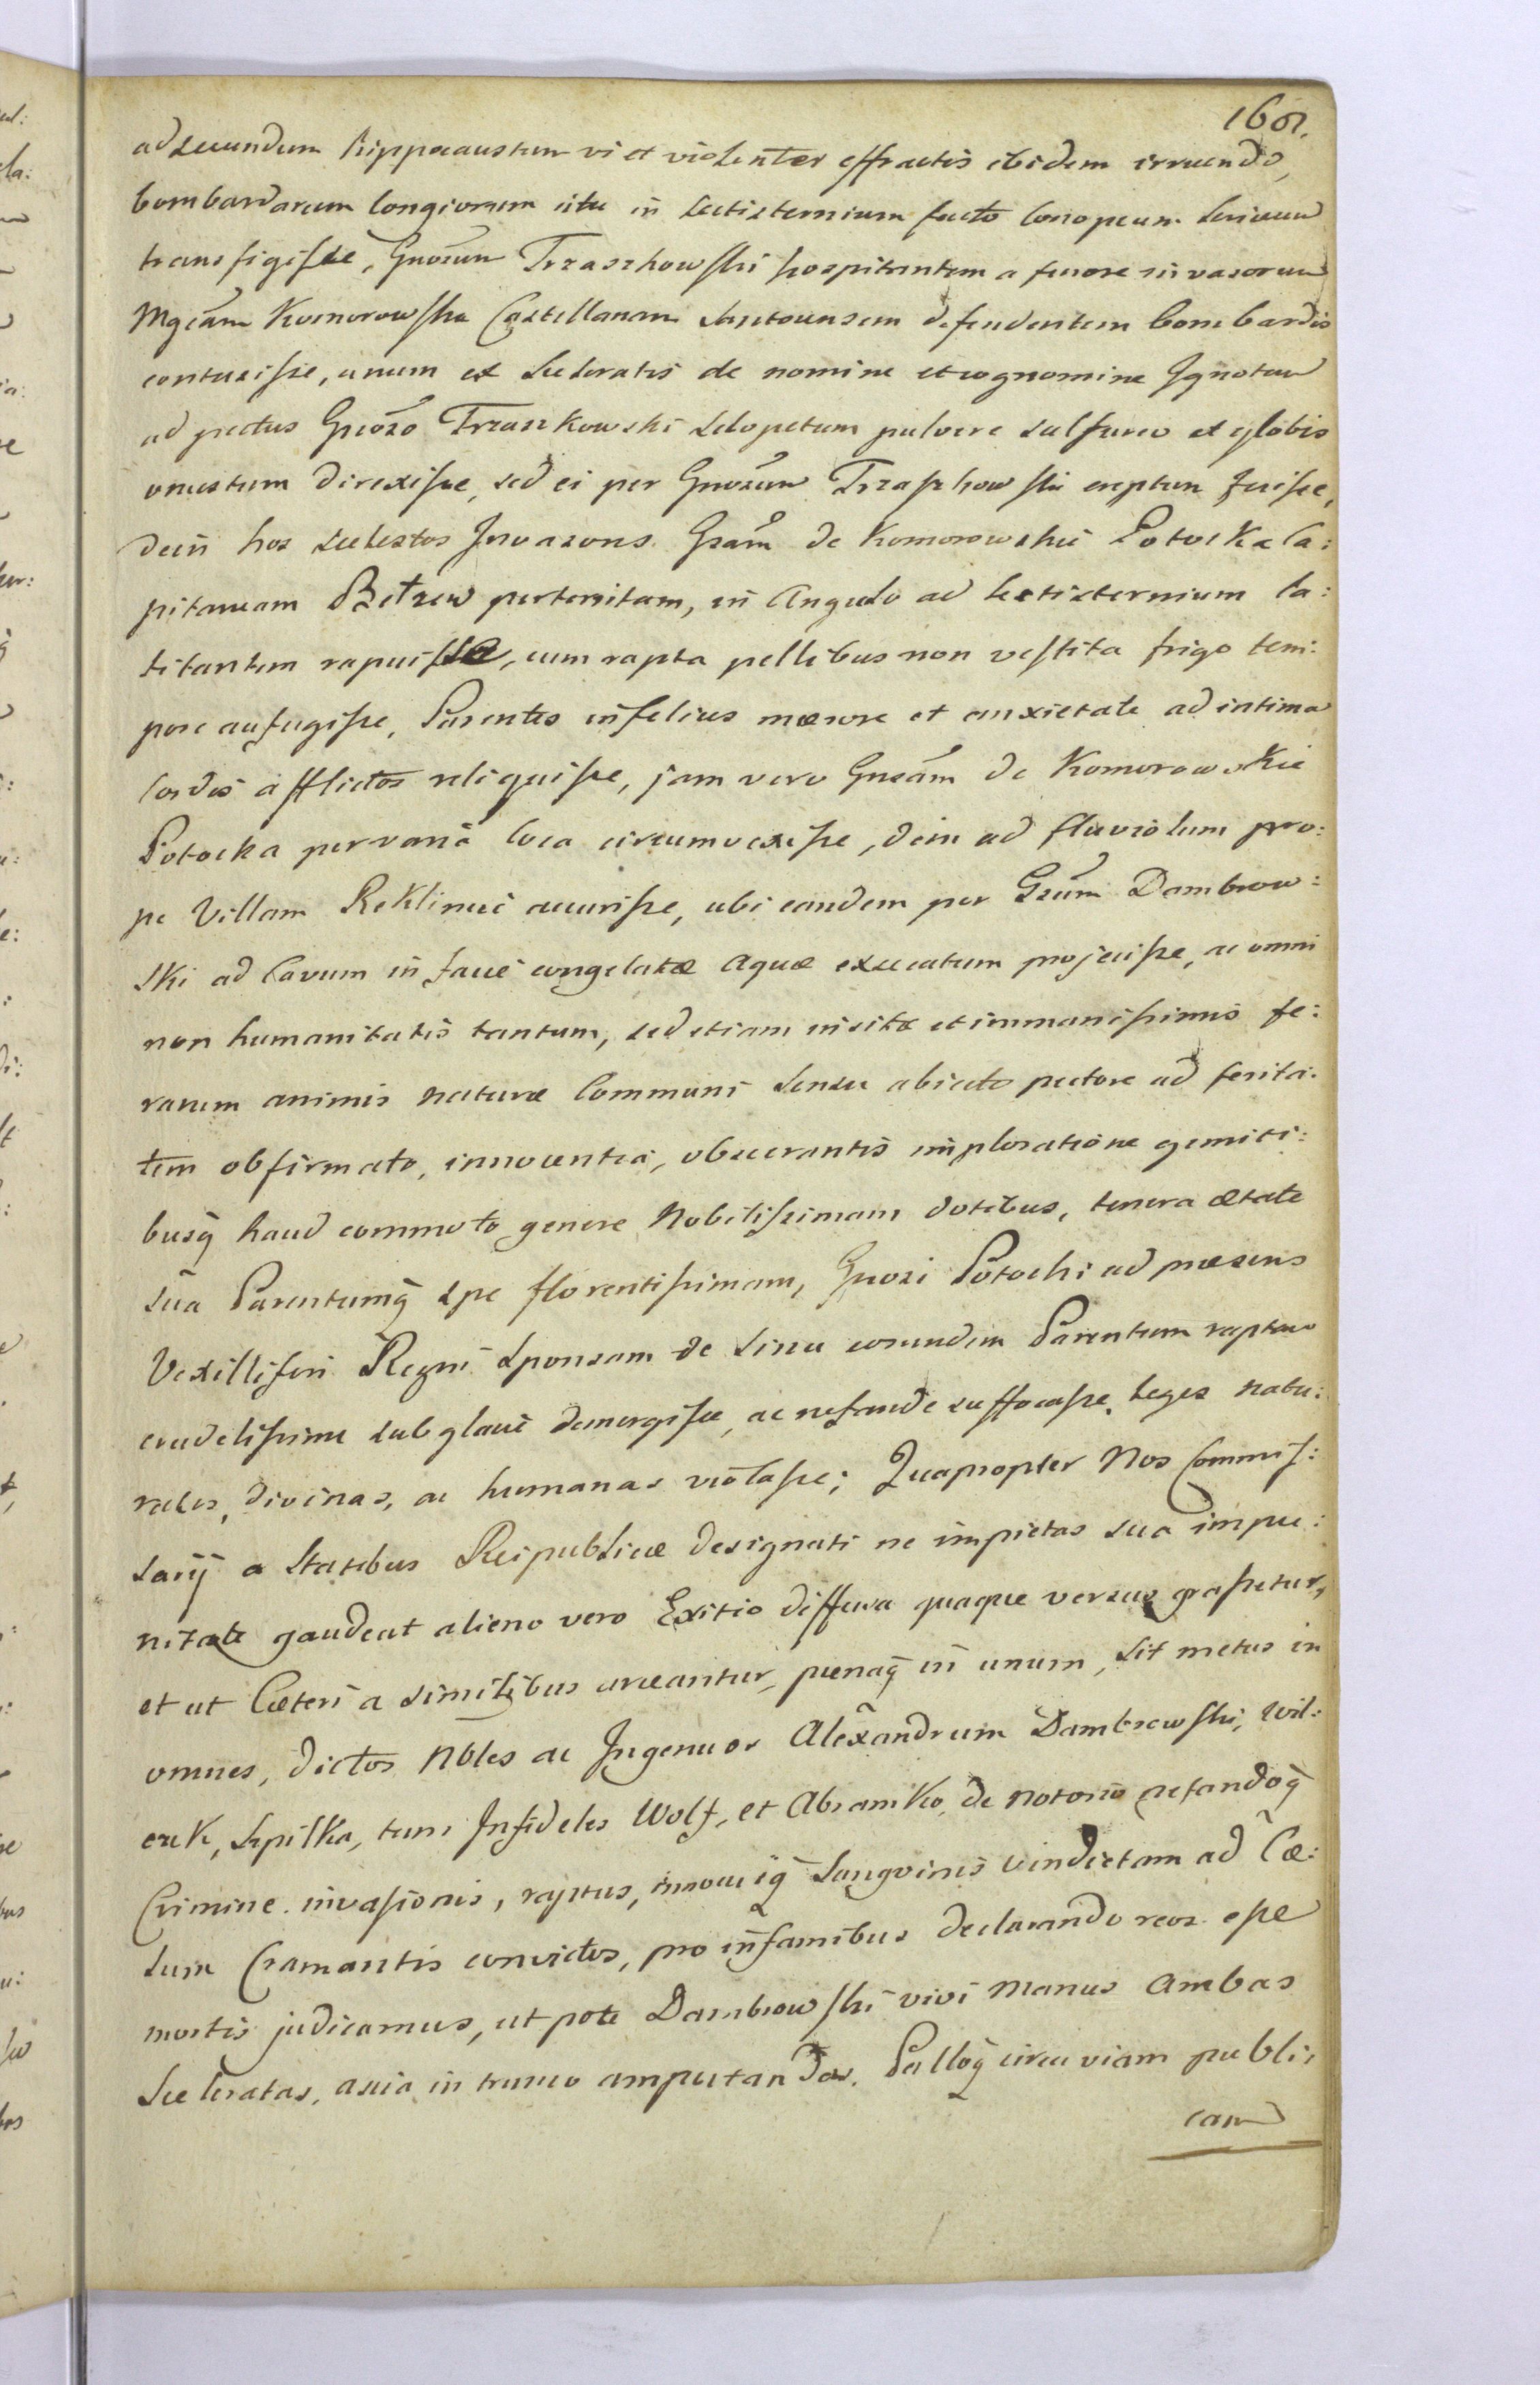 168.
ad secundum hippocaustum vi et violenter effractis ibidem irruendo,
bombardarum longiorum ictu in lectisternium facto Conopeum sericum
transfigisse, Gnosum Trzaszkowski hospitantem a furore invasorum
Mgcam Komorowska Castellanam Santocensem defendentem bombardis
contusisse, unum ex sceleratis de nomine et cognomine Ignotum
ad pectus Gnoso Trzaszkowski sclopetum pulvere sulfureo et globis
onustum direxisse, sed ei per Gnosum Trzaszkowski ereptum fuisse,
dein hos scelestos Invasores Gsam de Komorowskie Potocka Ca:
pitaneam Bełzen perterritam, in Angulo ad lectisternium la:
titantem rapuisse, cum rapta pellibus non vestita frigo tem:
pore aufugisse, Parentes infelices mærore et anxietate ad intima
Cordis afflictos reliquisse, jam vero Gnsam de Komorowskie
Potocka per varia loca circumvexisse, dein ad fluviolum pro:
pe Villam Reklinec accurisse, ubi eandem per Gsum Dambrow:
ski ad Cavum in facie congelatæ Aquæ exsecatum projecisse, ac omni
non humanitatis tantum, sed etiam insitæ et immanissimis fe:
rarum animis naturæ Communi sensu abiecto pectore ad ferita:
tem obfirmato, innocentia, obsecrantis imploratione gemiti:
busq̃ haud commoto genere Nobilissimam dotibus, tenera ætate
sua Parentumq̃ spe florentissimam, Gnosi Potocki ad præsens
Vexilliferi Regni Sponsam de sinu eorundem Parentum raptam
crudelissime sub glacie demergisse, ac nefande suffocasse, leges natu:
rales, divinas, ac humanas violasse; Quapropter Nos Commis:
sarij a Statibus Reipublicæ designati ne impietas sua impu:
nitate gaudeat alieno vero Exitio diffusa quaque versus grassetur,
et ut Cæteri a similibus arceantur, pænaq̃ in unum, sit metus in
omnes, dictos Nbles ac Ingenuos Alexandrum Dambrowski, Wil:
czek, Szpilka, tum Infideles Wolf, et Abramko, de notorio nefandoq̃
Crimine invasionis, raptus, innocuiq̃ Sangvinis vindictam ad Cæ:
lum Clamantis convictos, pro infamibus declarando reos esse
mortis judicamus, ut pote Dambrowski vivi manus ambas
Sceleratas, ascia in trunco amputandas, Palloq̃ circa viam publi:
cam